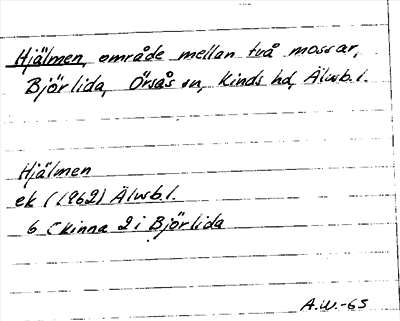 Hjälmen, område mellan två mossar,
Björlida, Örsås sn, Kinds hd, Älvsb. l.
Hjälmen
ek (1962) Älvsb. l.
6 Skinna 2 i Björlida
A.W.-65